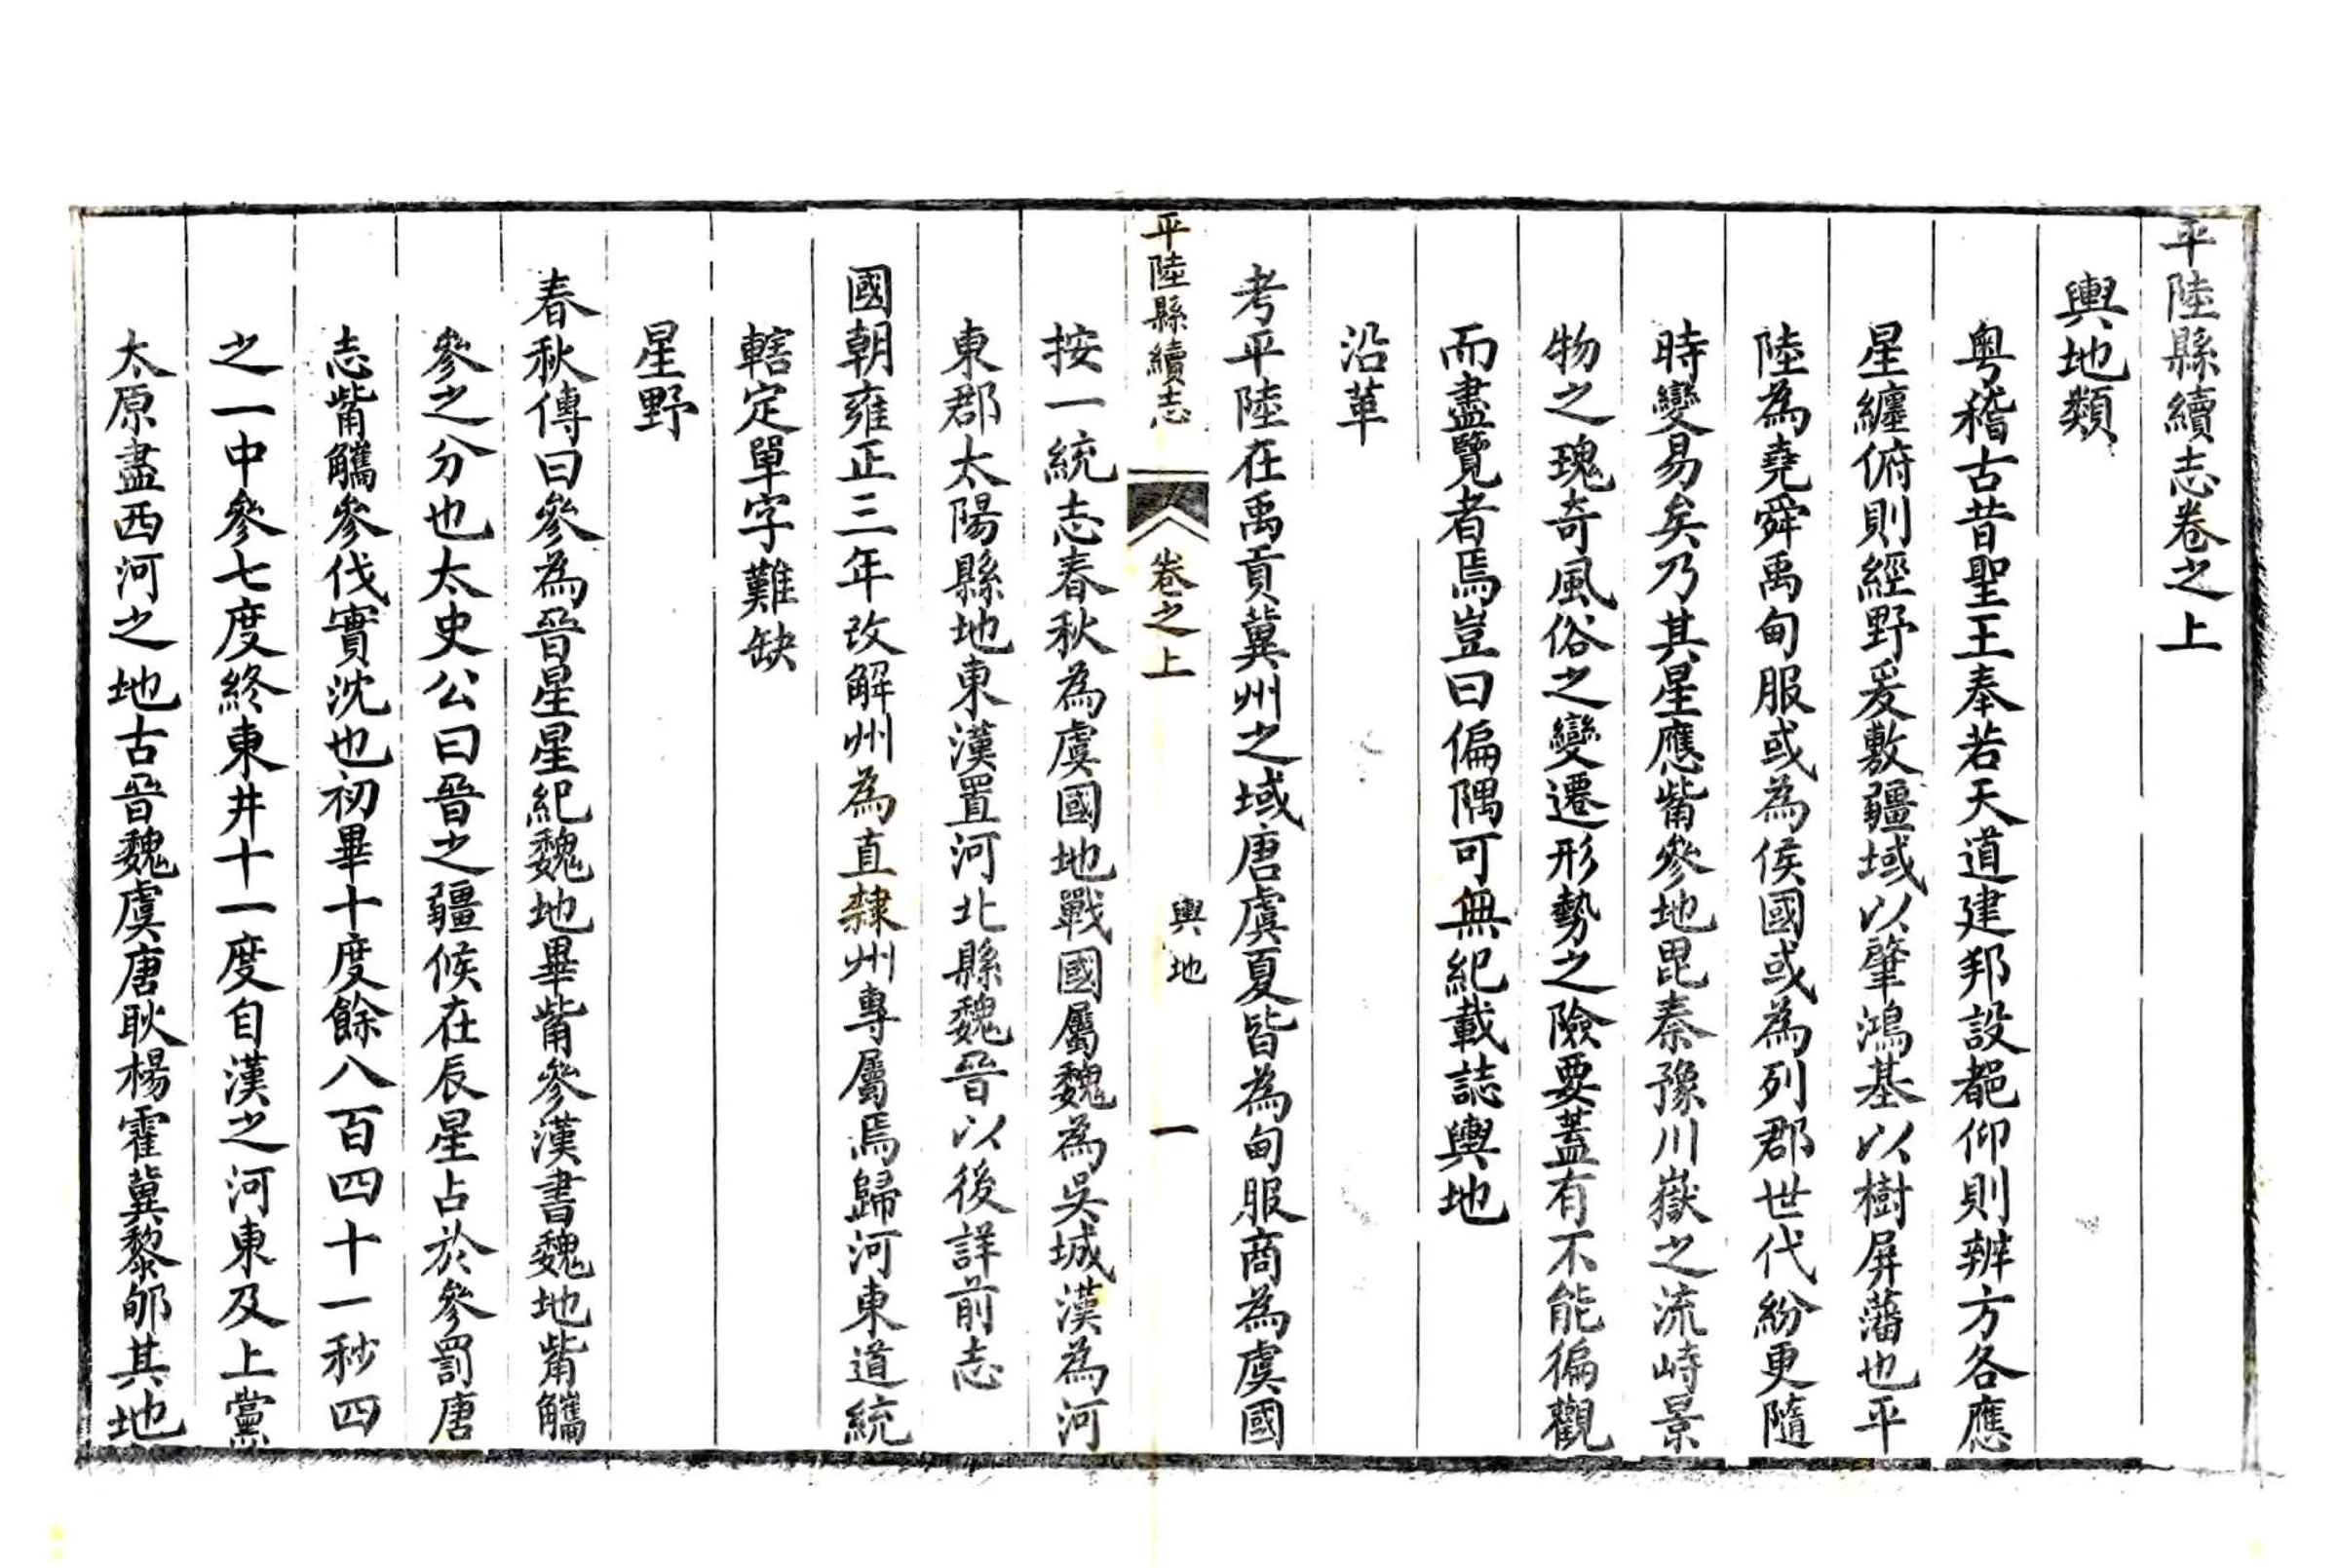 平陸縣續志卷之上
輿地類
粵稽古昔聖王奉若天道建邦設都仰則辨方各應
星纏俯則經野爰敷疆域以肇鴻基以樹屏藩也平
陸為堯舜禹甸服或為侯國或為列郡世代紛更隨
時變易矣乃其星應觜參地毘秦豫川嶽之流峙景
物之瑰奇風俗之變遷形勢之險要蓋有不能徧觀
而盡覽者焉豈曰偏隅可無紀載誌輿地
沿革
考平陸在禹貢冀州之域唐虞夏皆為甸服商為虞國
平陸縣續志 卷之上 輿地 一
按一統志春秋為虞國地戰國屬魏為吳城漢為河
東郡太陽縣地東漢置河北縣魏晉以後詳前志
國朝雍正三年改解州為直隸州專屬焉歸河東道統
轄定單字難缺
星野
春秋傳曰參為晉星星紀魏地畢觜參漢書魏地觜觿
參之分也太史公曰晉之疆候在辰星占於參罰唐
志觜觿參伐實沈也初畢十度餘八百四十一秒四
之一中參七度終東井十一度自漢之河東及上黨
太原盡西河之地古晉魏虞唐耿楊霍冀黎郇其地